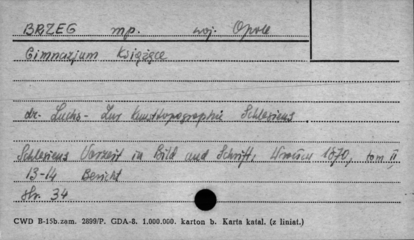 BRZEG mp. woj. Opole
Gimnazjum Książęce
dr. Luchs - Zur Kunsttopographie Schlesiens
Schlesiens Vorzeit in Bild und Schrift, Wrocław 1870, tom II,
13-14 Bericht
str. 34
CWD B-15b.zam. 2899/P. GDA-8. 1.000.000. karton b. Karta katal. (z liniat.)